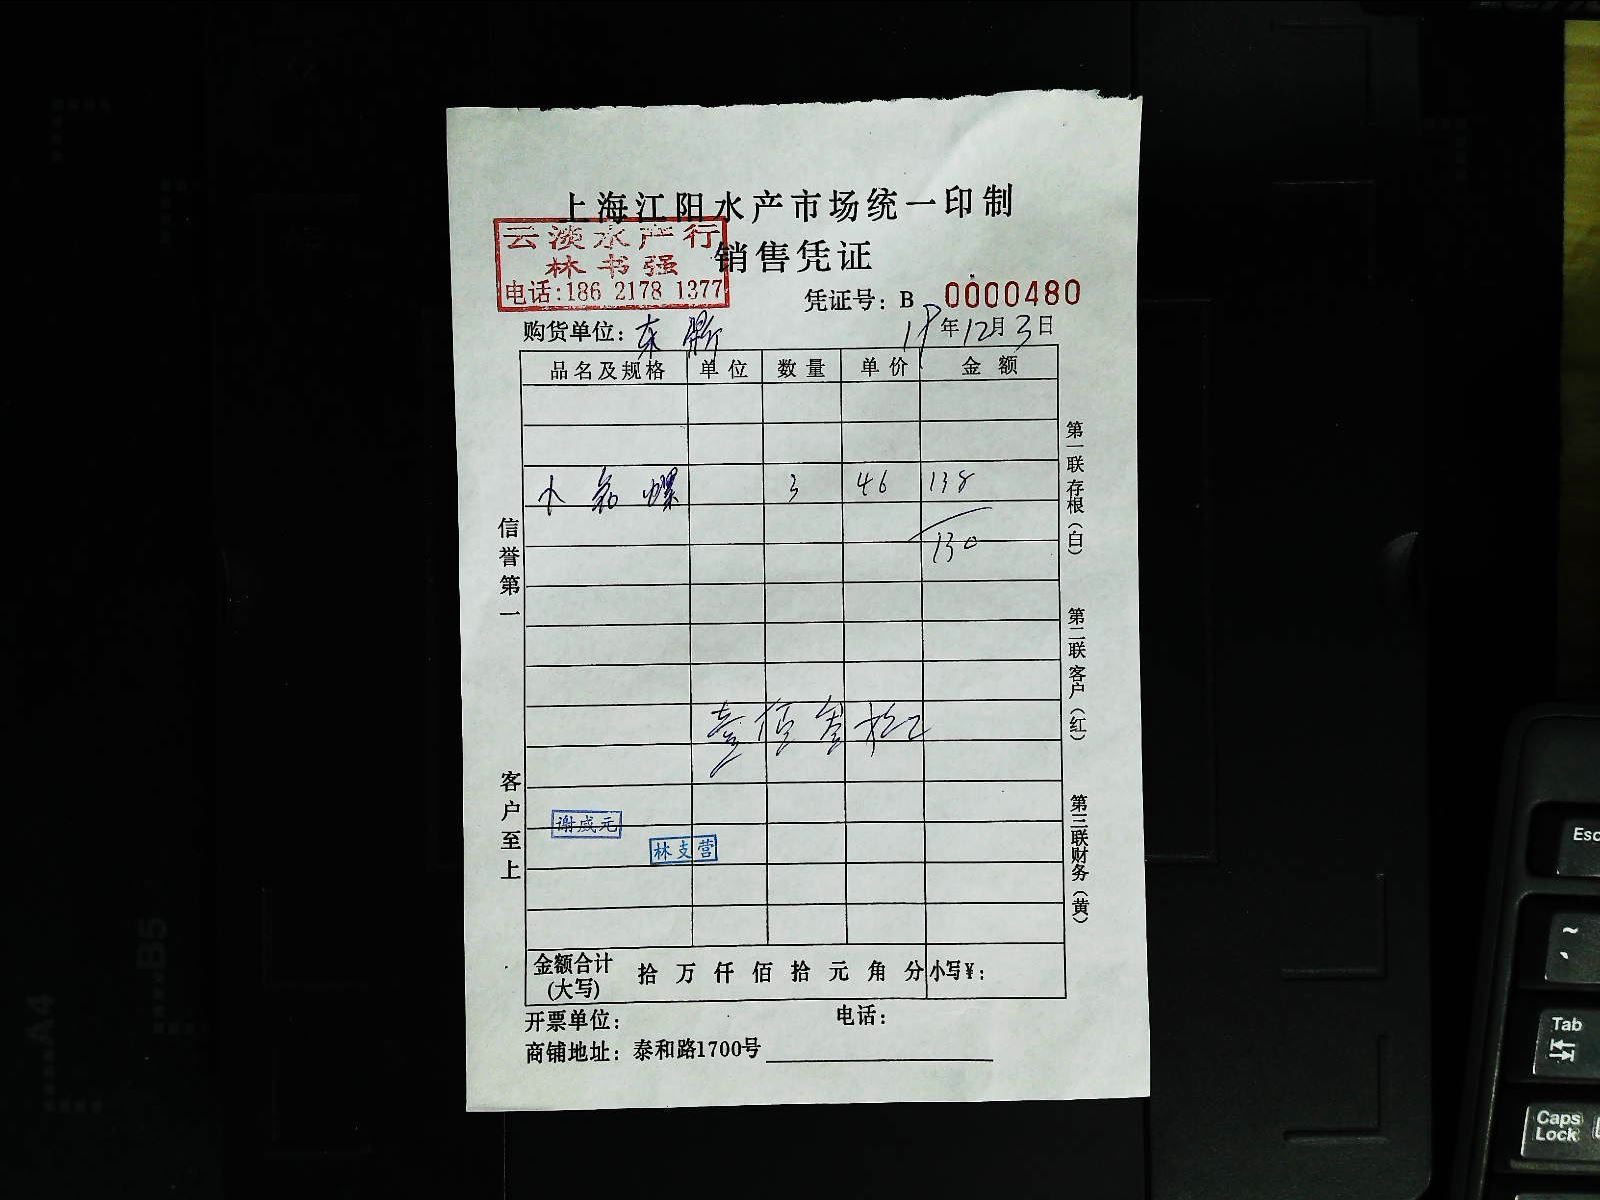 上海江阳水产市场统一印制
销售凭证
云淡水产行
林书强
电话:186 2178 1377
凭证号: B 0000480
购货单位: 东
18年12月3日
品名及规格 单位 数量 单价 金额
小 螺 3 46 138
130
壹佰叁拾元
信誉第一
客户至上
第一联存根(白)
第二联客户(红)
第三联财务(黄)
谢威元
林支营
金额合计(大写) 拾万仟佰拾元角分 小写¥:
开票单位: 电话:
商铺地址: 泰和路1700号
B5
A4
Esc
~
Tab
Caps Lock